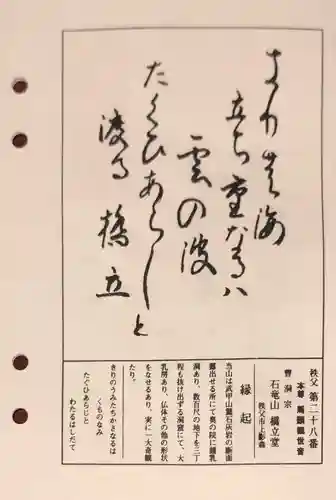 きりの海
立ち重なるハ
雲の波
たくひあらしと
渡る 橋立
秩父 第二十八番
本尊 馬頭観世音
曹洞宗
石竜山 橋立堂
秩父市上影森
縁起
当山は武甲山麓石灰岩の断面
露出せる所にて奥の院に鍾乳
洞あり、数百尺の地下を三丁
程も抜け出ずる洞窟にて、大
乳房あり、仏体その他の形状
をなせるあり、実に一大奇観
たり。
きりのうみたちかさなるは
くものなみ
たぐひあらじと
わたるはしだて